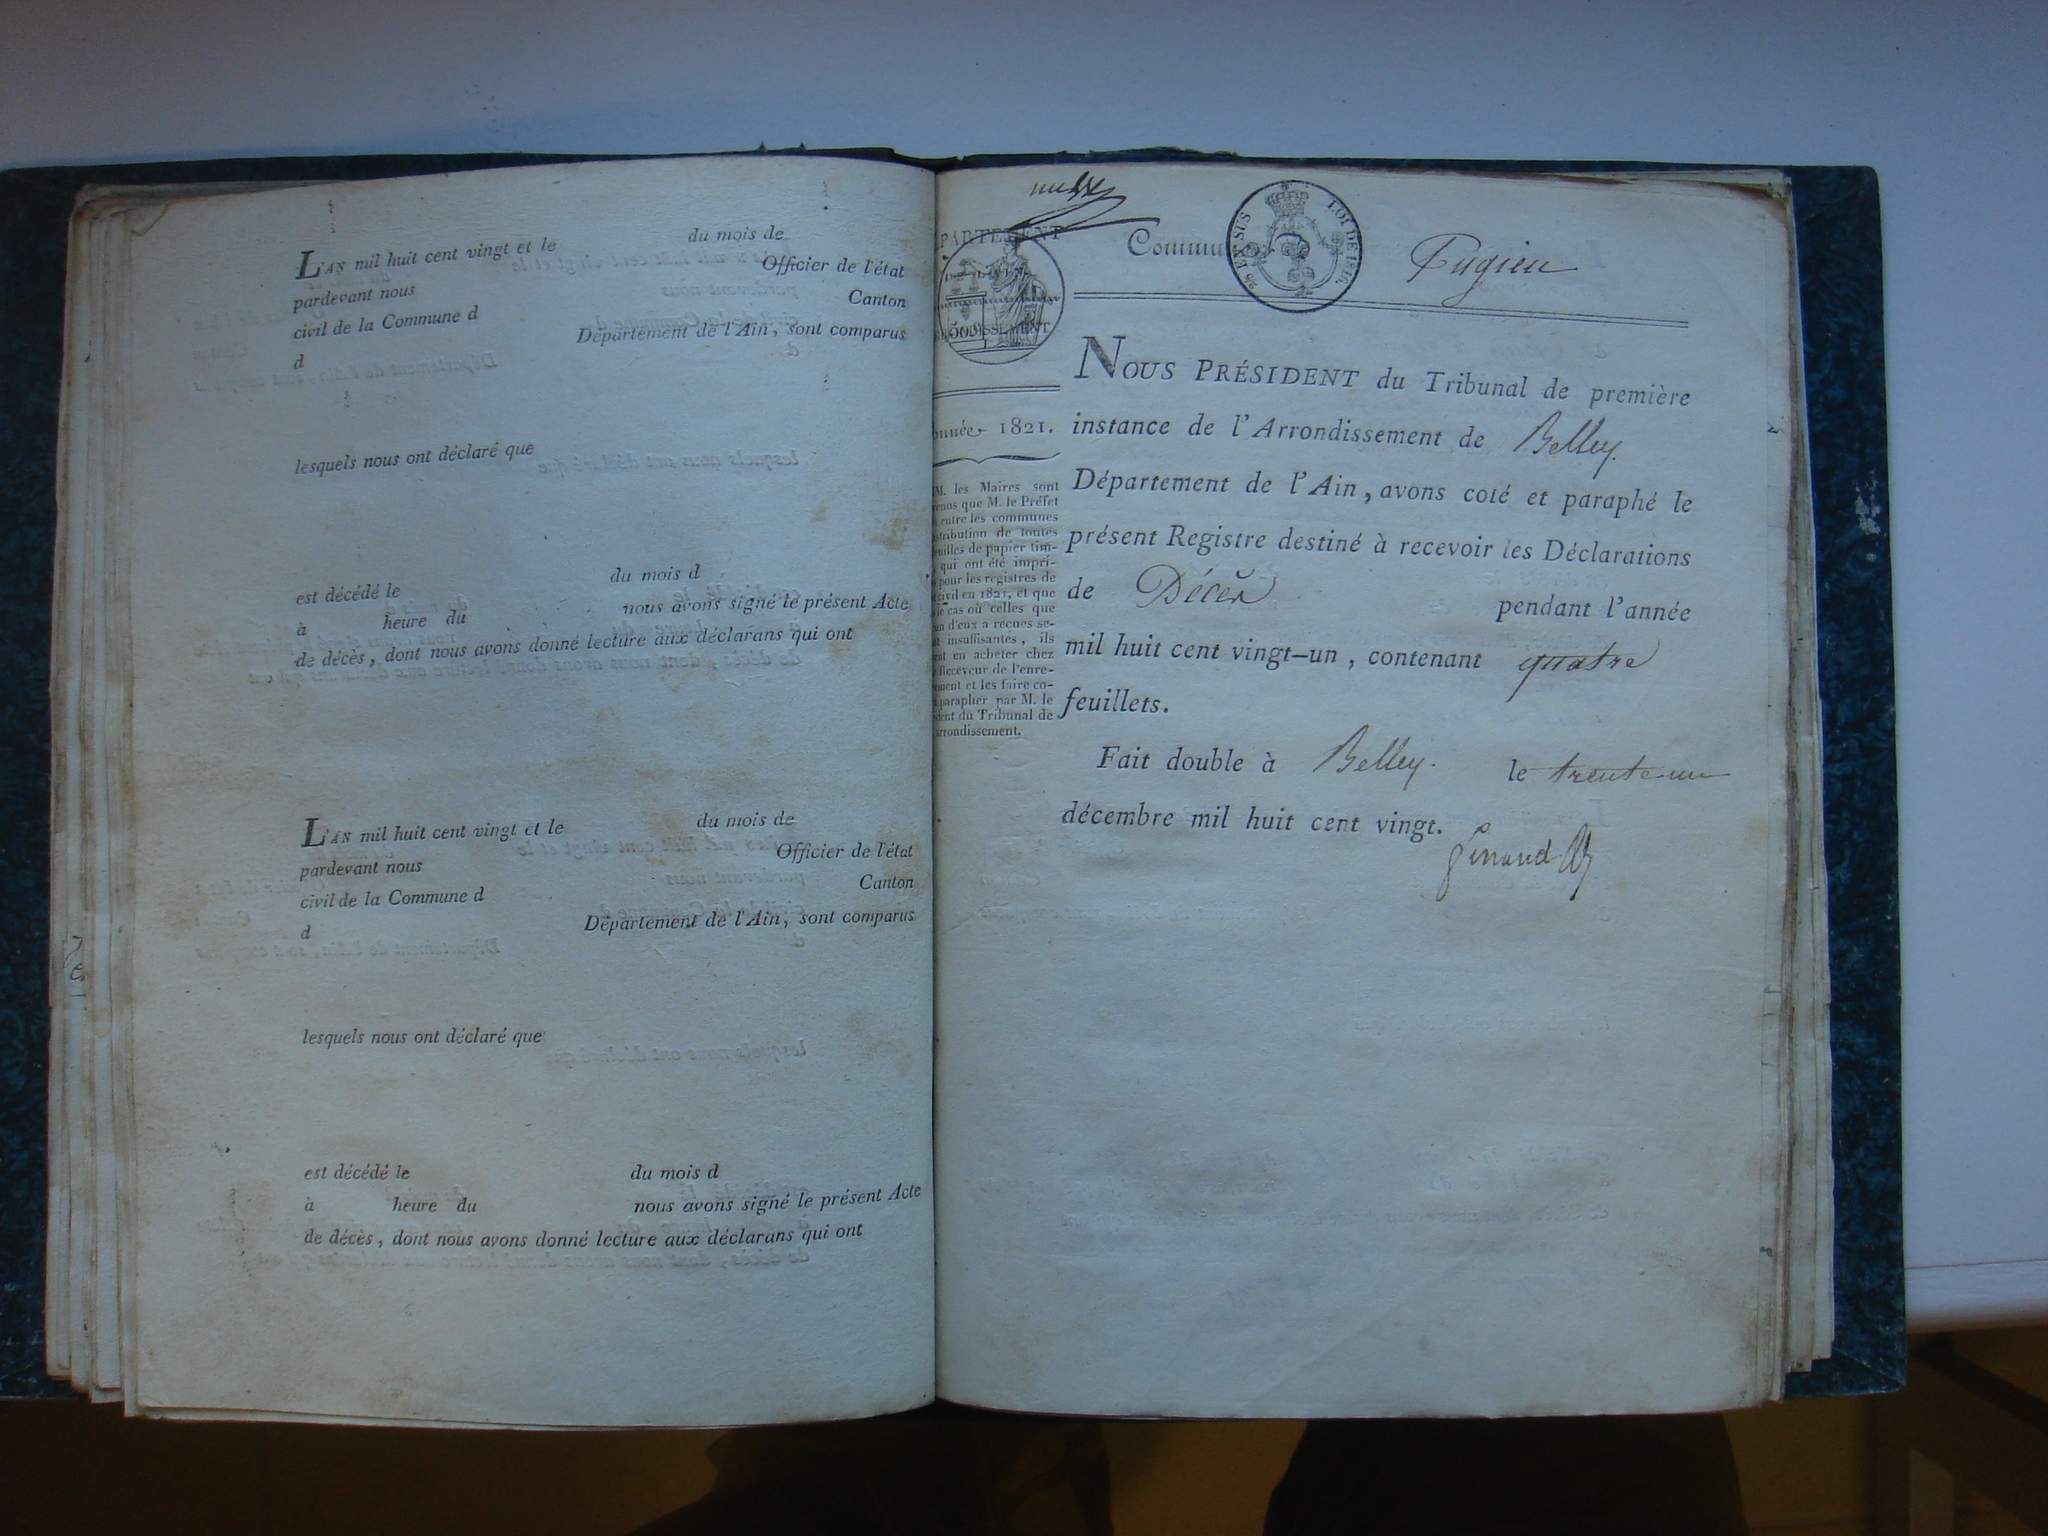 L'AN mil huit cent vingt et le du mois de
pardevant nous Officier de l'état
civil de la Commune d Canton
d Département de l'Ain, sont comparus
lesquels nous ont déclaré que
est décédé le du mois d
à heure du nous avons signé le présent Acte
de décès, dont nous avons donné lecture aux déclarans qui ont
L'AN mil huit cent vingt et le du mois de
pardevant nous Officier de l'état
civil de la Commune d Canton
d Département de l'Ain, sont comparus
lesquels nous ont déclaré que
est décédé le du mois d
à heure du nous avons signé le présent Acte
de décès, dont nous avons donné lecture aux déclarans qui ont
PARTEMENT
50
SSEMENT
1821.
M. les Maires sont
que M. le Préfet
entre les communes
tribution de toutes
uilles de papier tim-
qui ont été impri-
pour les registres de
civil en 1821, et que
le cas où celles que
un d'eux a reçues se-
insuffisantes, ils
en acheter chez
Receveur de l'enre-
ment et les faire co-
parapher par M. le
dent du Tribunal de
rrondissement.
Commu Pugieu
EN SUS LOI DE 1816.
NOUS PRÉSIDENT du Tribunal de première
instance de l'Arrondissement de Belley
Département de l'Ain, avons coté et paraphé le
présent Registre destiné à recevoir les Déclarations
de Décès pendant l'année
mil huit cent vingt-un, contenant quatre
feuillets.
Fait double à Belley. le trente-un
décembre mil huit cent vingt.